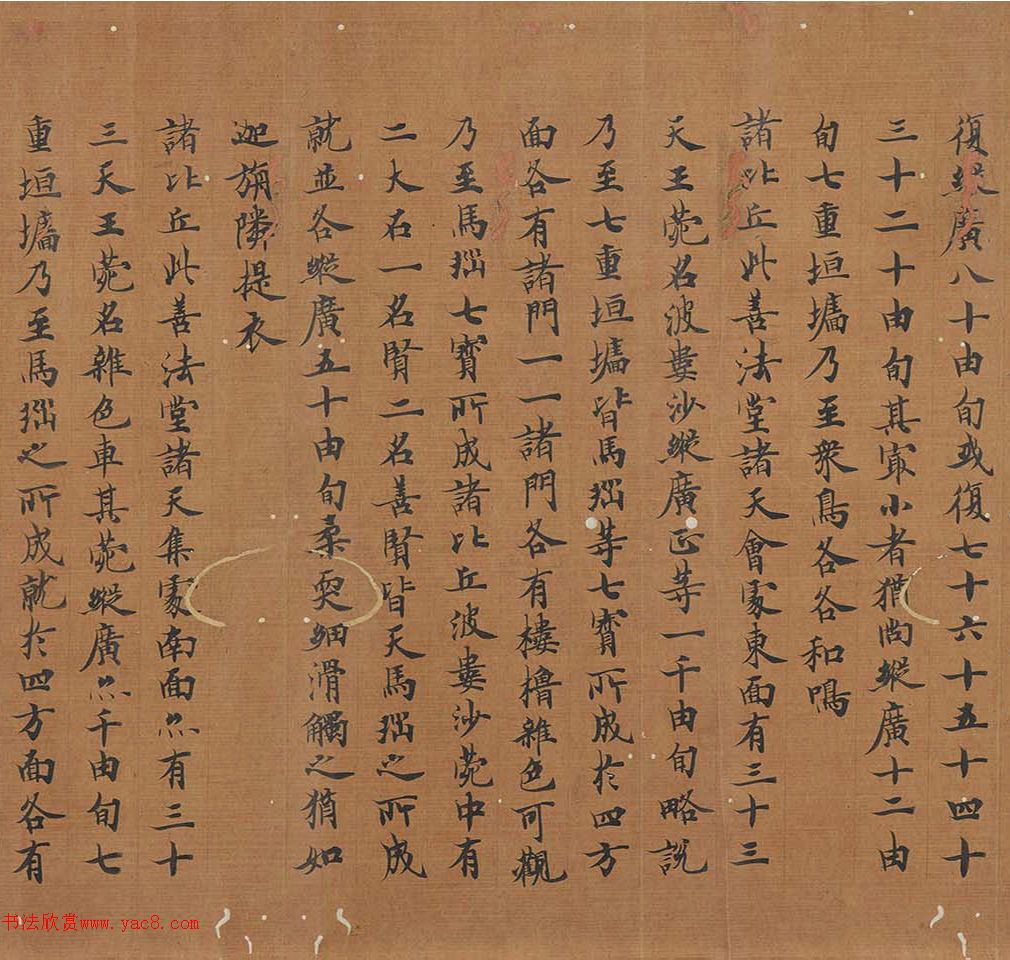 復縱廣八十由旬或復七十六十五十四十
三十二十由旬其㝡小者猶尚縱廣十二由
旬七重垣墻乃至衆鳥各各和鳴
諸比丘此善法堂諸天會處東面有三十三
天王菀名波婁沙縱廣正等一千由旬略說
乃至七重垣墻皆馬瑙等七寶所成於四方
面各有諸門一一諸門各有樓櫓雜色可觀
乃至馬瑙七寶所成諸比丘波婁沙菀中有
二大石一名賢二名善賢皆天馬瑙之所成
就並各縱廣五十由旬柔耎細滑觸之猶如
迦旃隣提衣
諸比丘此善法堂諸天集處南面亦有三十
三天王菀名雜色車其菀縱廣亦千由旬七
重垣墻乃至馬瑙之所成就於四方面各有
书法欣赏www.yac8.com